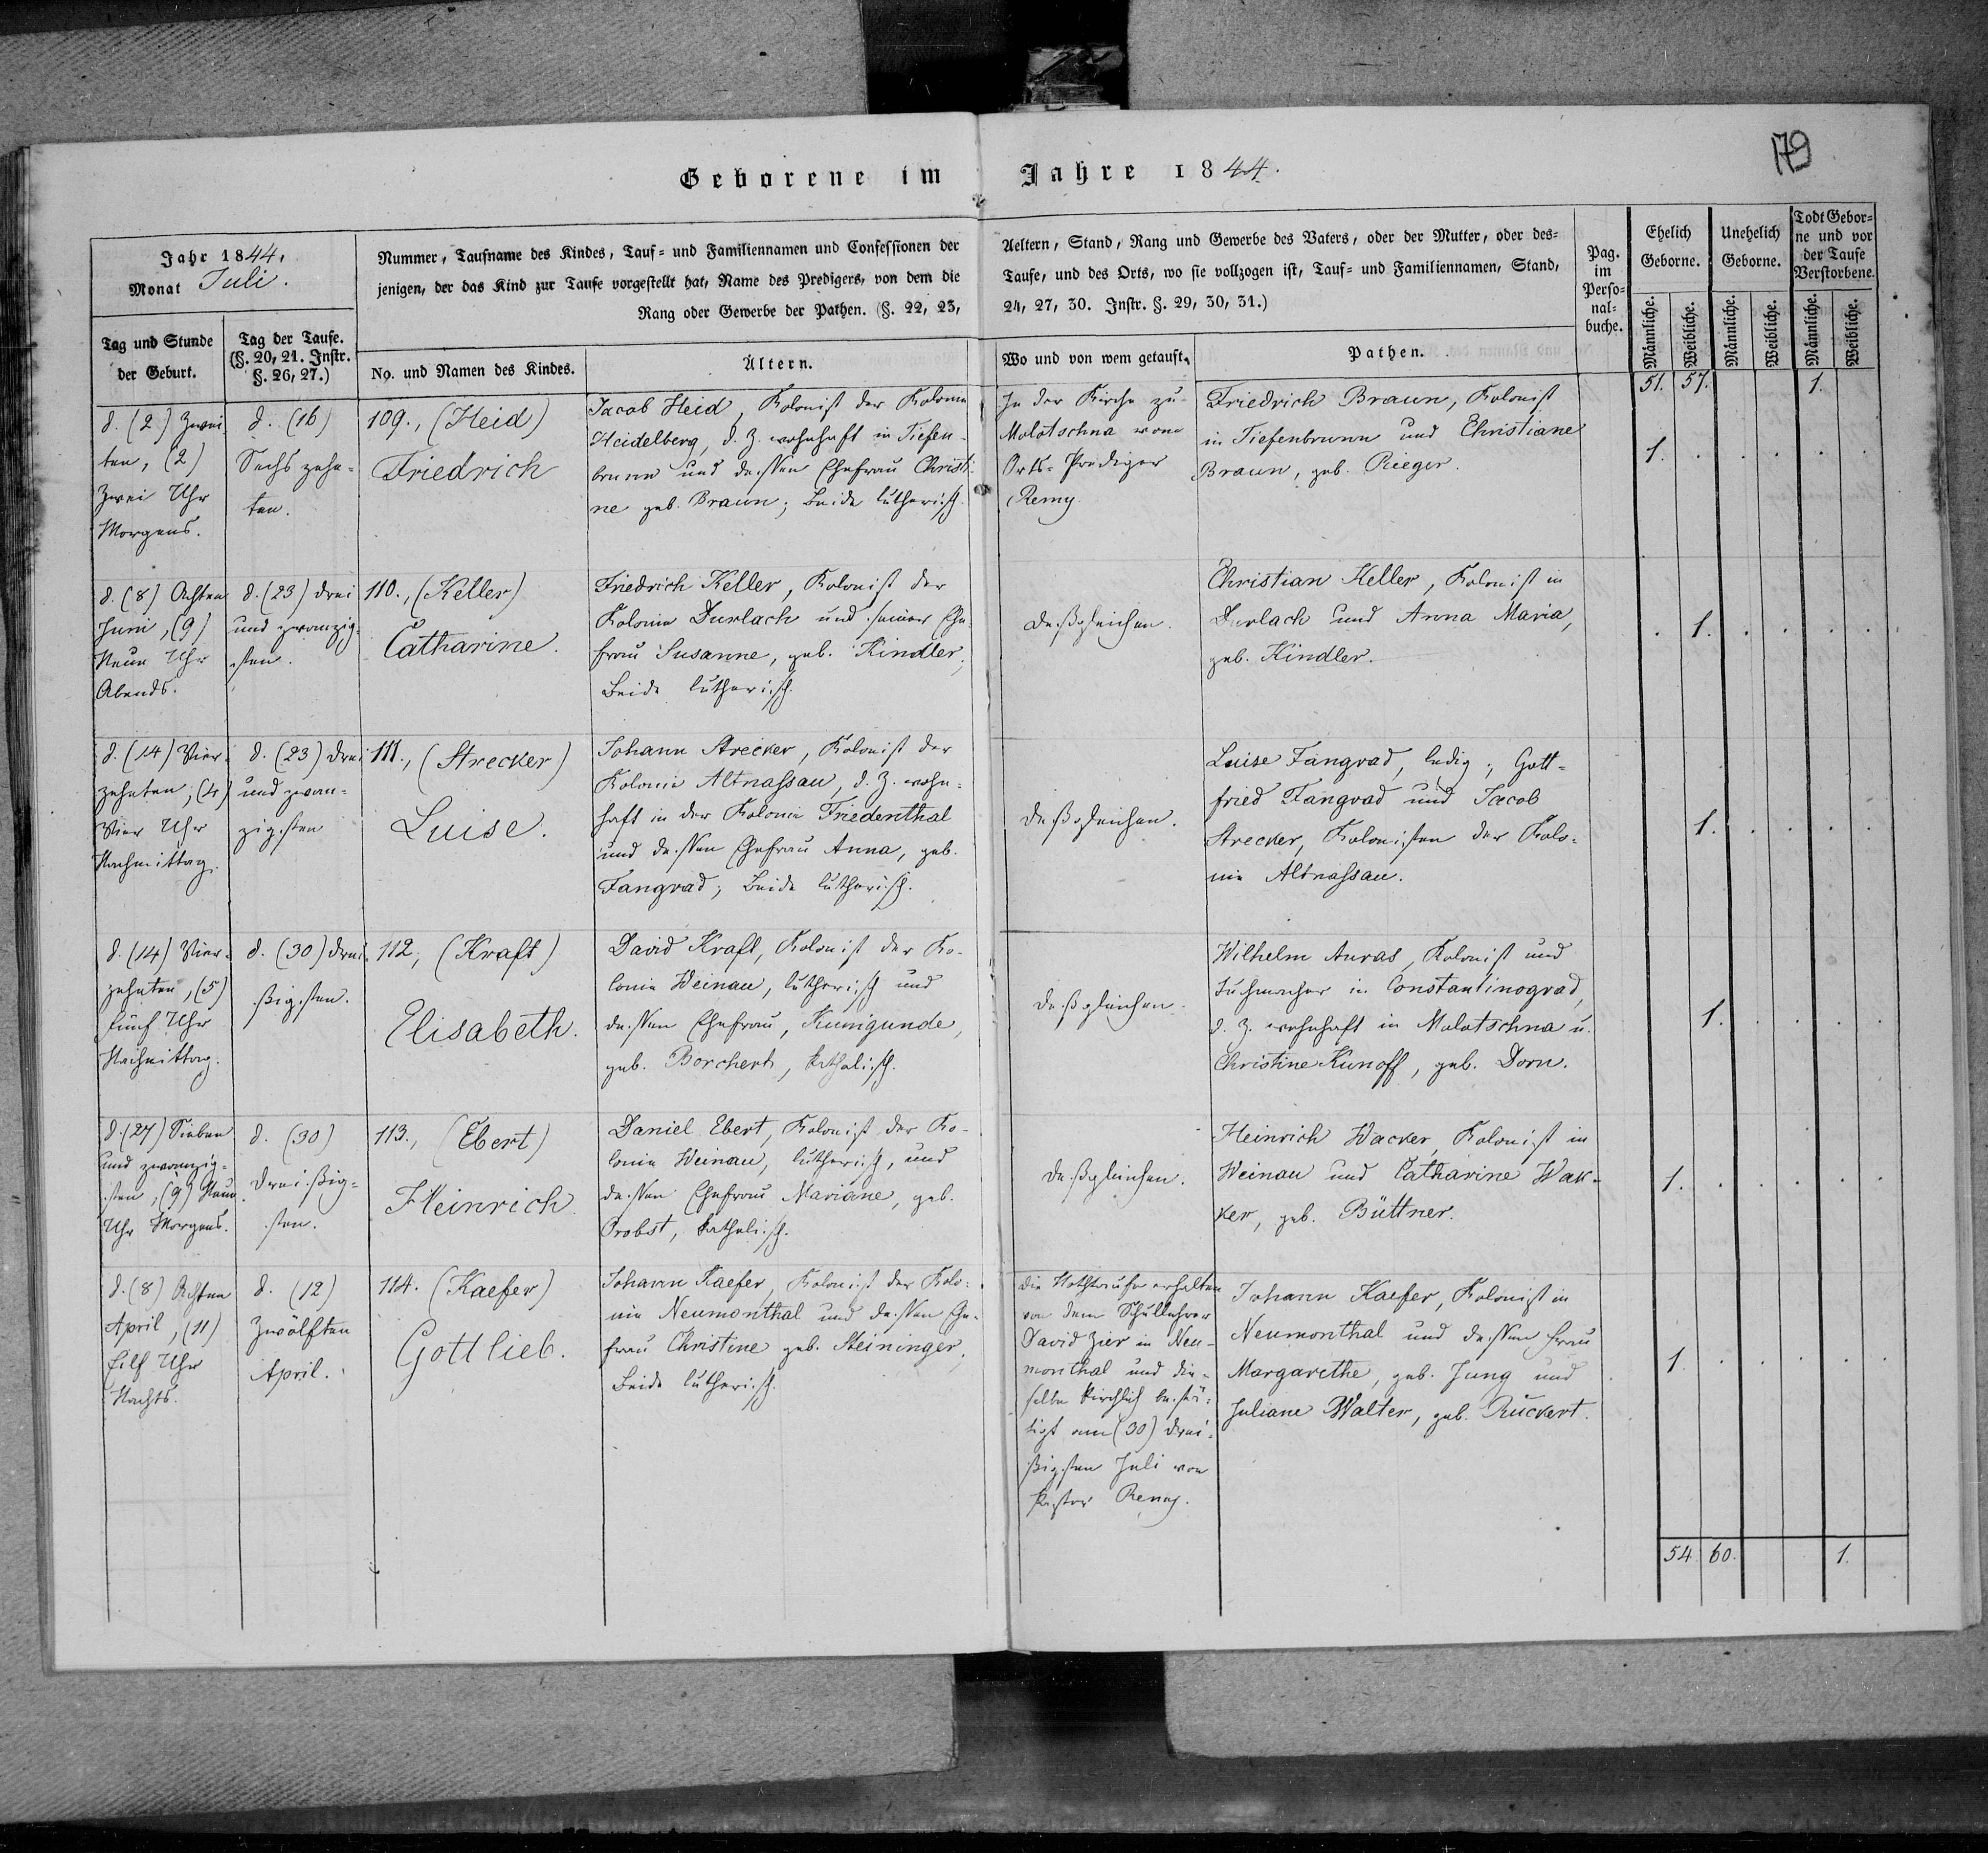 179
Geborene im Jahre 1844.
Jahr 1844.
Monat Juli.
Tag und Stunde
der Geburt.
Tag der Taufe.
(§. 20, 21. Instr.
§. 26, 27.)
Nummer, Taufname des Kindes, Tauf- und Familiennamen und Confessionen der
jenigen, der das Kind zur Taufe vorgestellt hat, Name des Predigers, von dem die
Rang oder Gewerbe der Pathen. (§. 22, 23,
No. und Namen des Kindes.
Ältern.
Aeltern, Stand, Rang und Gewerbe des Vaters, oder der Mutter, oder des-
Taufe, und des Orts, wo sie vollzogen ist, Tauf- und Familiennamen, Stand,
24, 27, 30. Instr. §. 29, 30, 31.)
Wo und von wem getauft.
Pathen.
Pag.
im
Perso-
nal-
buche.
Ehelich
Geborne.
Unehelich
Geborne.
Todt Gebor-
ne und vor
der Taufe
Verstorbene.
Männliche.
Weibliche.
Männliche.
Weibliche.
Männliche.
Weibliche.
51. 57. 1.
d. (2) Zwei
ten, (2)
Zwei Uhr
Morgens.
d. (16)
Sechszehn-
ten.
109., (Heid)
Friedrich
Jacob Heid, Kolonist der Kolonie
Heidelberg, d. Z. wohnhaft in Tiefen-
brunn und dessen Ehefrau Christi-
ne geb. Braun; Beide lutherisch.
In der Kirche zu
Molotschna vom
Orts-Prediger
Remy
Friedrich Braun, Kolonist
in Tiefenbrunn und Christiane
Braun, geb. Rieger.
1. . . . . .
d. (8) Achten
Juni, (9)
Neun Uhr
Abends.
d. (23) drei
und zwanzig-
sten.
110., (Keller)
Catharine.
Friedrich Keller, Kolonist der
Kolonie Durlach und seiner Ehe-
frau Susanne, geb. Kindler;
Beide lutherisch.
Deßgleichen.
Christian Keller, Kolonist in
Durlach und Anna Maria,
geb. Kindler.
. 1. . . . .
d. (14) Vier-
zehnten, (4)
Vier Uhr
Nachmittag.
d. (23) drei
und zwan-
zigsten
111., (Strecker)
Luise.
Johann Strecker, Kolonist der
Kolonie Altnassau, d. Z. wohn-
haft in der Kolonie Friedenthal
und dessen Ehefrau Anna, geb.
Fangrad; Beide lutherisch.
Deßgleichen.
Luise Fangrad, ledig; Gott-
fried Fangrad und Jacob
Strecker, Kolonisten der Kolo-
nie Altnassau.
1. . . . .
d. (14) Vier-
zehnten, (5)
Fünf Uhr
Nachmittag.
d. (30) drei-
ßigsten.
112, (Kraft)
Elisabeth.
David Kraft, Kolonist der Ko-
lonie Weinau, lutherisch und
dessen Ehefrau, Kunigunde,
geb. Borchert, katholisch.
Deßgleichen.
Wilhelm Auras, Kolonist und
Tuchmacher in Constantinograd,
d. Z. wohnhaft in Molotschna u.
Christine Kunoff, geb. Dorn.
1. . . . .
d. (27) Sieben
und zwanzig-
sten, (9) Neun
Uhr Morgens.
d. (30)
Dreißig-
sten.
113., (Ebert)
Heinrich
Daniel Ebert, Kolonist der Ko-
lonie Weinau, lutherisch, und
dessen Ehefrau Mariane, geb.
Probst, katholisch.
Deßgleichen.
Heinrich Wacker, Kolonist in
Weinau und Catharine Wak-
ker, geb. Büttner.
1. . . . . .
d. (8) Achten
April, (11)
Eilf Uhr
Nachts.
d. (12)
Zwölften
April.
114. (Kaefer)
Gottlieb.
Johann Kaefer, Kolonist der Kolo-
nie Neumonthal und dessen Ehe-
frau Christine geb. Steininger,
Beide lutherisch.
Die Nothtaufe erhalten
von dem Schullehrer
David Zier in Neu-
monthal und die-
selbe kirchlich bestä-
tigt am (30) drei-
ßigsten Juli von
Pastor Remy.
Johann Kaefer, Kolonist in
Neumonthal und dessen Frau
Margarethe, geb. Jung und
Juliane Walter, geb. Rückert.
1 . . . . .
54 60. 1.